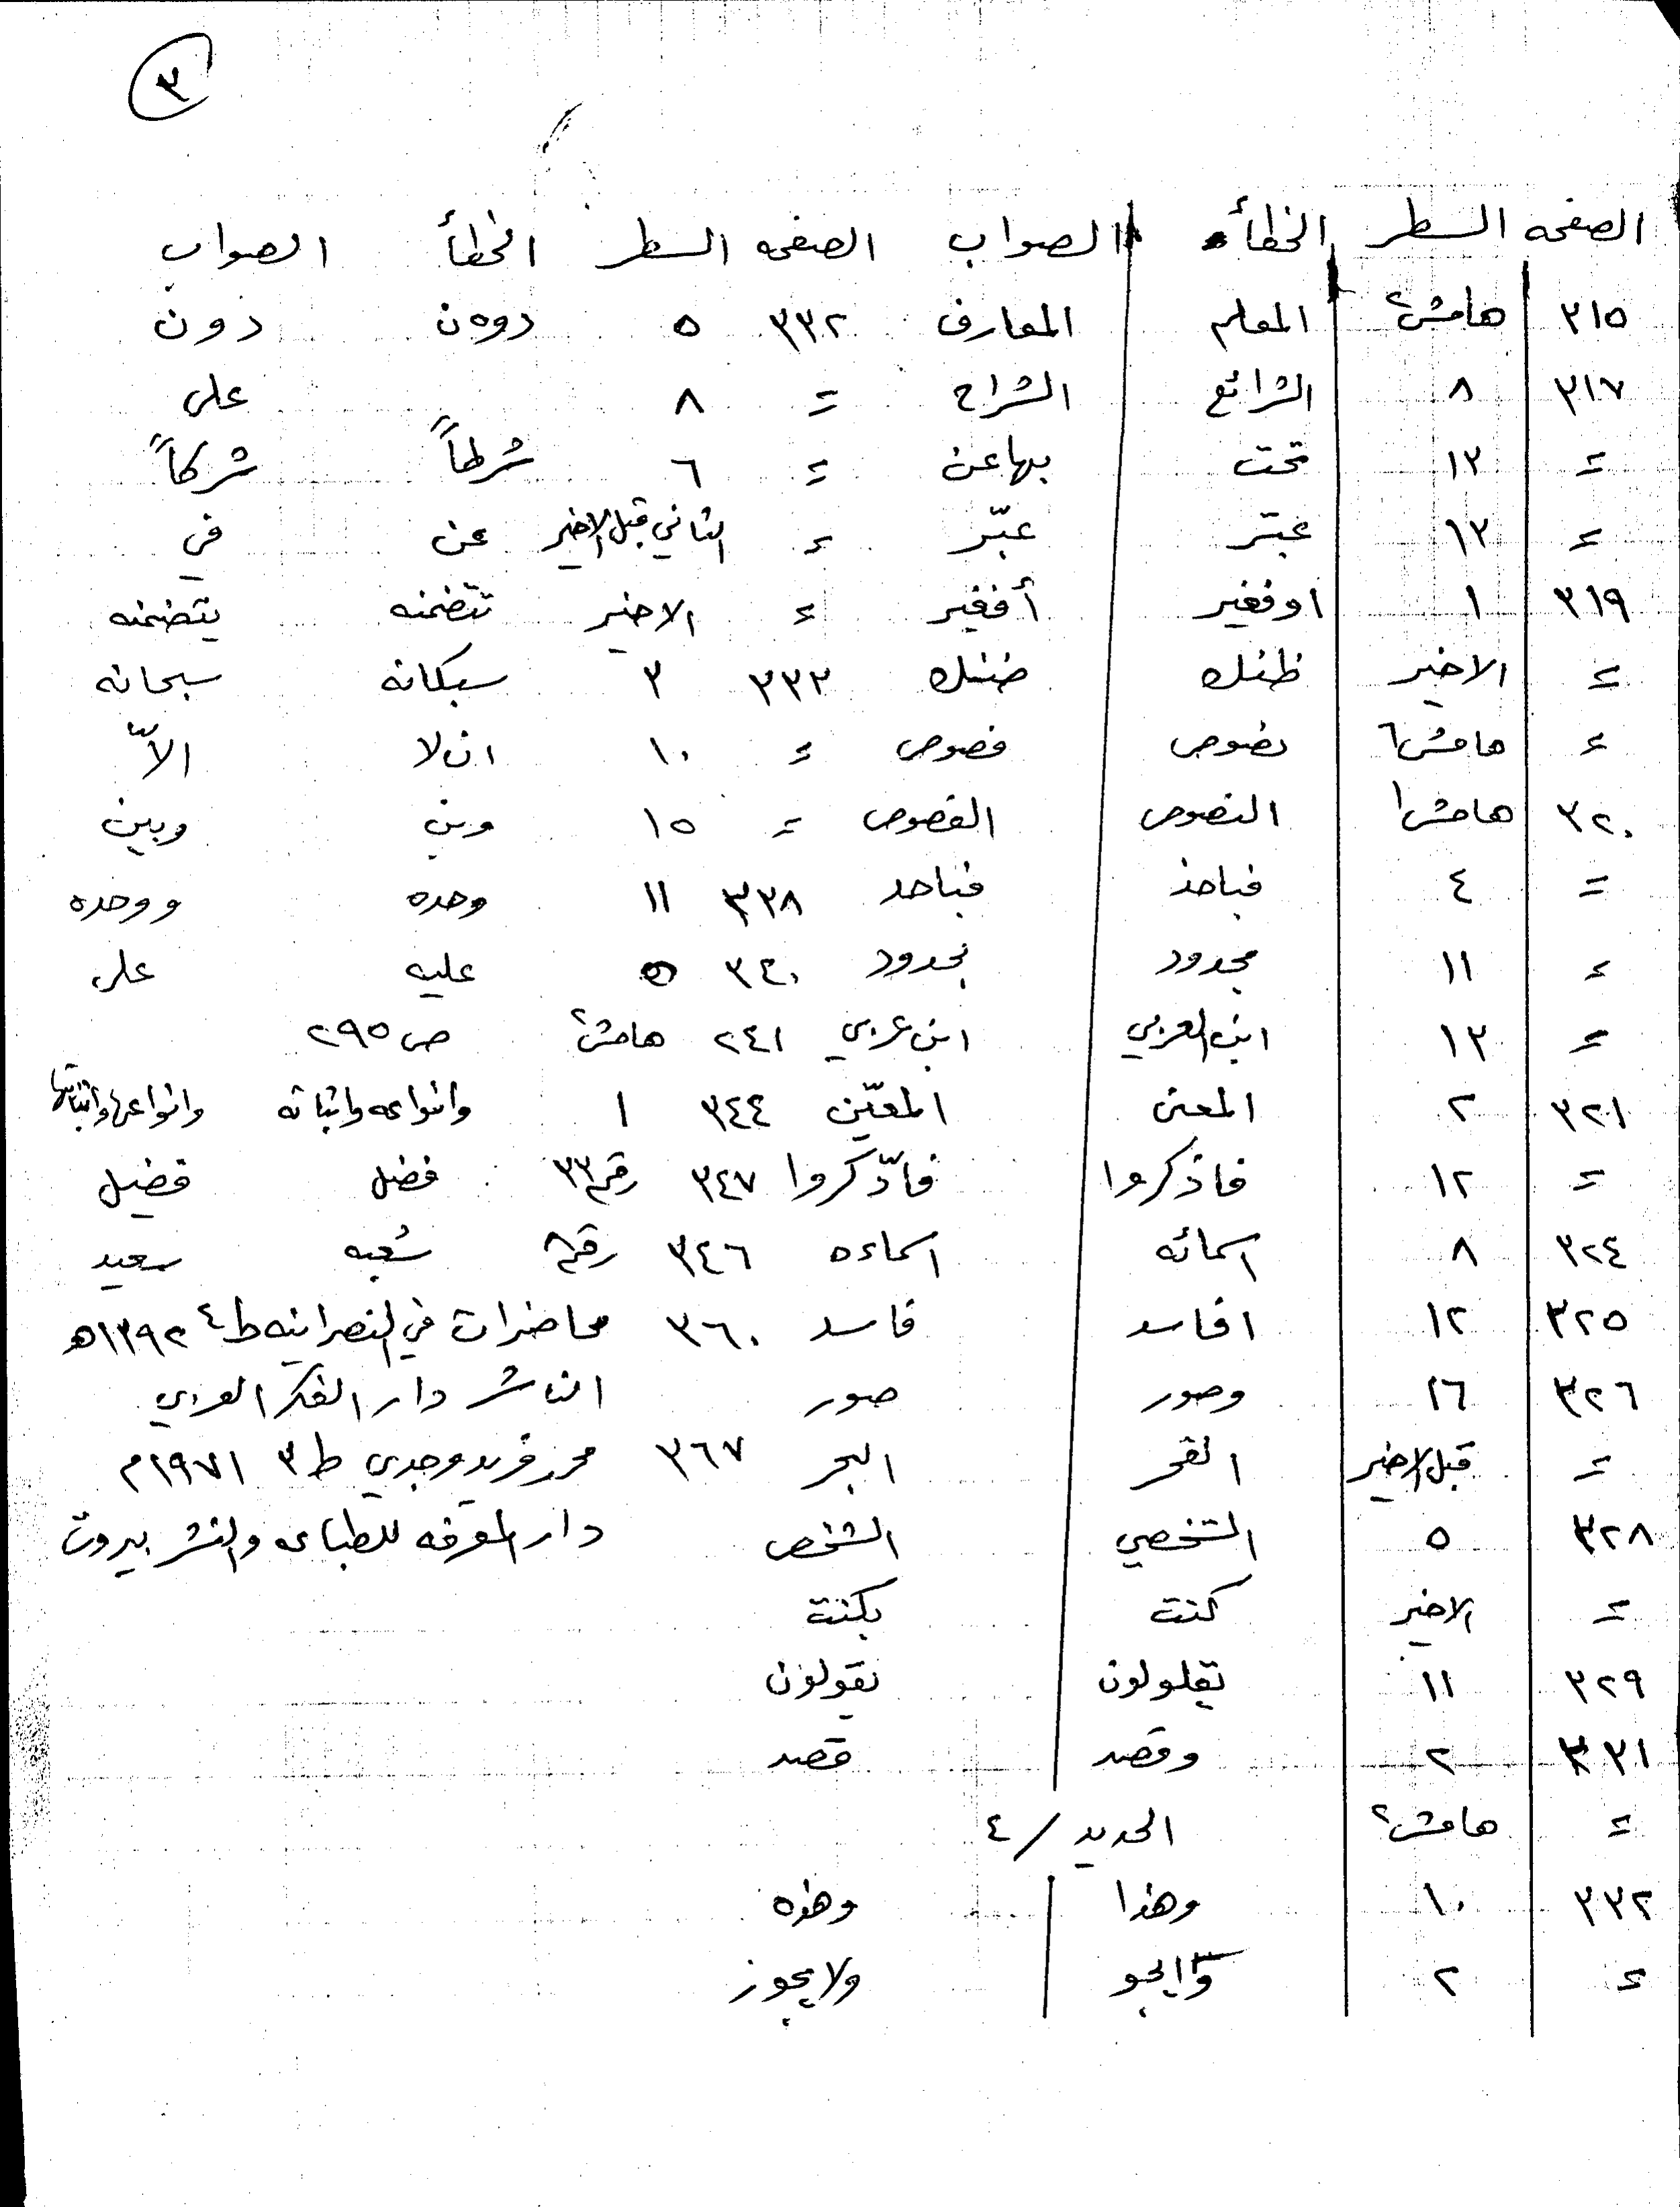 ٣
الصفحه السطر الخطأ الصواب الصفحه السطر الخطأ الصواب
٣١٥ هامش٢ المعلم المعارف ٣٣٢ ٥ دوون دون
٣١٧ ٨ الشرائع الشراح = ٨ على
= ١٣ تحت بها عن = ٦ شرطاً شركاً
= ١٣ عبتر عبّر = الثاني قبل الاخير عن في
٣١٩ ١ اوفغير أفغير = الاخير تتضمنه يتضمنه
= الاخير ظنك ضنك ٣٣٣ ٣ سبكانه سبحانه
= هامش٦ نصوص فصوص = ١٠ ان لا الاّ
٣٢٠ هامش١ النصوص الفصوص = ١٥ وبن وبين
= ٤ فباحذ فباحد ٣٣٨ ١١ وحده ووحده
= ١١ محدود بحدود ٣٤٠ ٥ عليه على
= ١٣ ابن العربي ابن عربي ٢٤١ هامش٢ ص ٢٩٥
٣٢١ ٢ المعنى المعيّن ٣٤٤ ١ وانواعه واثباته وانواعها واثباتها
= ١٢ فاذكروا فادّكروا ٣٤٧ رقم ٣٣ فضل فضيل
٣٢٤ ٨ اسمائه اسماءه ٣٤٦ رقم ٨ شعبه سعيد
٣٢٥ ١٢ افاسد فاسد ٣٦٠ محاضرات في النصرانيه ط٤ ١٣٩٢ه
٣٢٦ ١٦ وصور صور الناشر دار الفكر العربي
= قبل الاخير الفحر البحر ٣٦٧ محمد فريد وجدي ط ٣ ١٩٧١م
٣٢٨ ٥ الشخصي الشخص دار المعرفه للطباعه والنشر بيروت
= الاخير كنت بكنت
٣٢٩ ١١ تقلولون تقولون
٣٣١ ٢ وقصد قصد
= هامش٢ الحديد / ٤
٣٣٢ ١٠ وهذا وهذه
= ٢ ولايجوز